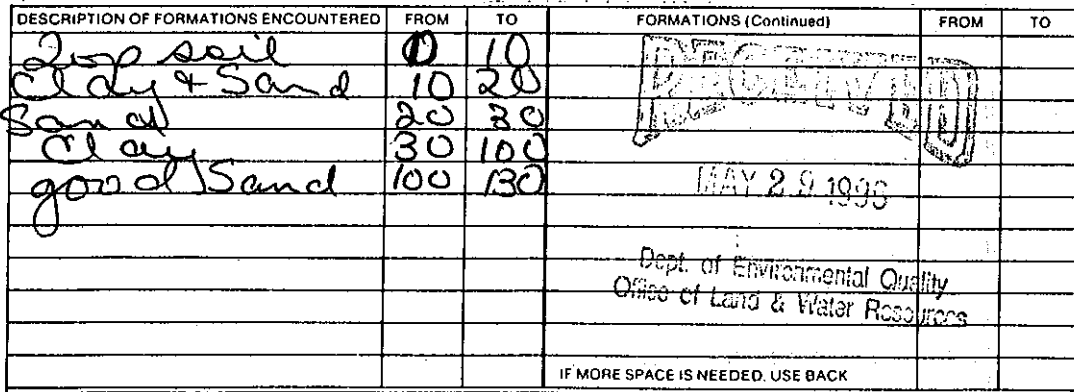 DESCRIPTION OF FORMATIONS ENCOUNTERED FROM TO FORMATIONS (Continued) FROM TO
Top soil 0 10
Clay & Sand 10 20
Sand 20 30
Clay 30 100
good Sand 100 130
RECEIVED
MAY 29
Dept. of Environmental Quality
Office of Land & Water Resources
IF MORE SPACE IS NEEDED, USE BACK